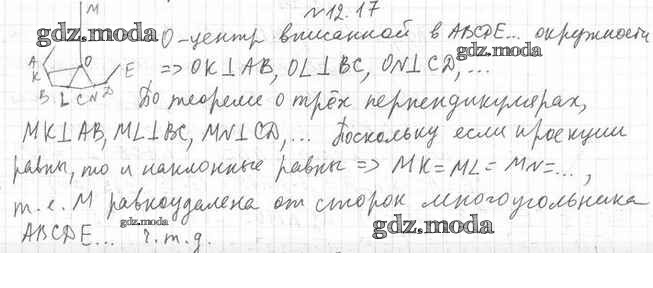 №12.17
M
gdz.moda
O-центр вписанной в ABCDE... окружности
A O
K E
B L C N D
=> OK⊥AB, OL⊥BC, ON⊥CD, ...
По теореме о трёх перпендикулярах,
MK⊥AB, ML⊥BC, MN⊥CD, ... Поскольку если проекции
равны, то и наклонные равны => MK=ML=MN=...,
т.е. M равноудалена от сторон многоугольника
gdz.moda
ABCDE... ч.т.д.
gdz.moda